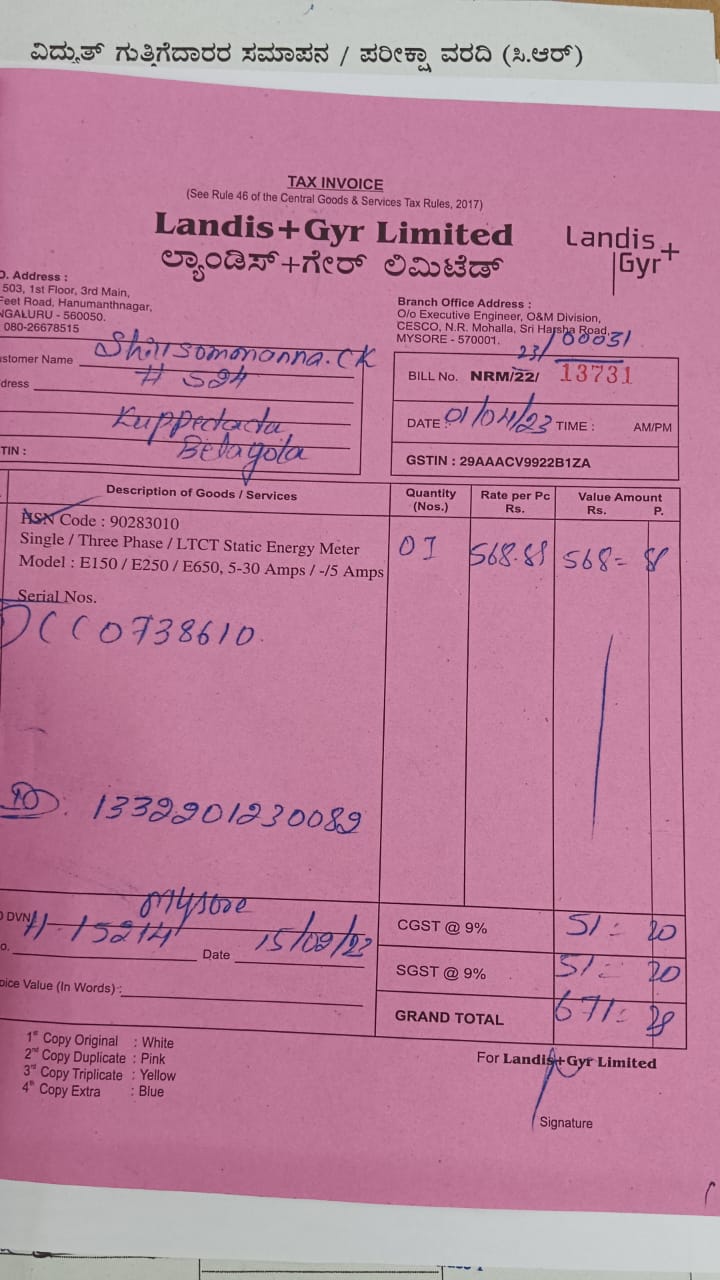 ವಿದ್ಯುತ್ ಗುತ್ತಿಗೆದಾರರ ಸಮಾಪನ / ಪರೀಕ್ಷಾ ವರದಿ (ಸಿ.ಆರ್)
TAX INVOICE
(See Rule 46 of the Central Goods & Services Tax Rules, 2017)
Landis+Gyr Limited
ಲ್ಯಾಂಡಿಸ್+ಗೇರ್ ಲಿಮಿಟೆಡ್
Landis+
Gyr
O. Address :
503, 1st Floor, 3rd Main,
Feet Road, Hanumanthnagar,
NGALURU - 560050.
080-26678515
Branch Office Address :
O/o Executive Engineer, O&M Division,
CESCO, N.R. Mohalla, Sri Harsha Road,
MYSORE - 570001.
23/00031
ustomer Name Shri Somonanna. CK
dress # 524
Kuppedada
Belagola
TIN :
BILL No. NRM/22/ 13731
DATE : 01/04/23 TIME : AM/PM
GSTIN : 29AAACV9922B1ZA
Description of Goods / Services Quantity (Nos.) Rate per Pc Rs. Value Amount Rs. P.
HSN Code : 90283010
Single / Three Phase / LTCT Static Energy Meter
Model : E150 / E250 / E650, 5-30 Amps / -/5 Amps
01 568.88 568= 8
Serial Nos.
DCC0738610
ID: 1332201230089
Mysore
DVN H-15214
o. Date 15/09/22
oice Value (In Words) :
CGST @ 9% 51= 20
SGST @ 9% 51= 20
GRAND TOTAL 671= 28
1st Copy Original : White
2nd Copy Duplicate : Pink
3rd Copy Triplicate : Yellow
4th Copy Extra : Blue
For Landis+Gyr Limited
Signature